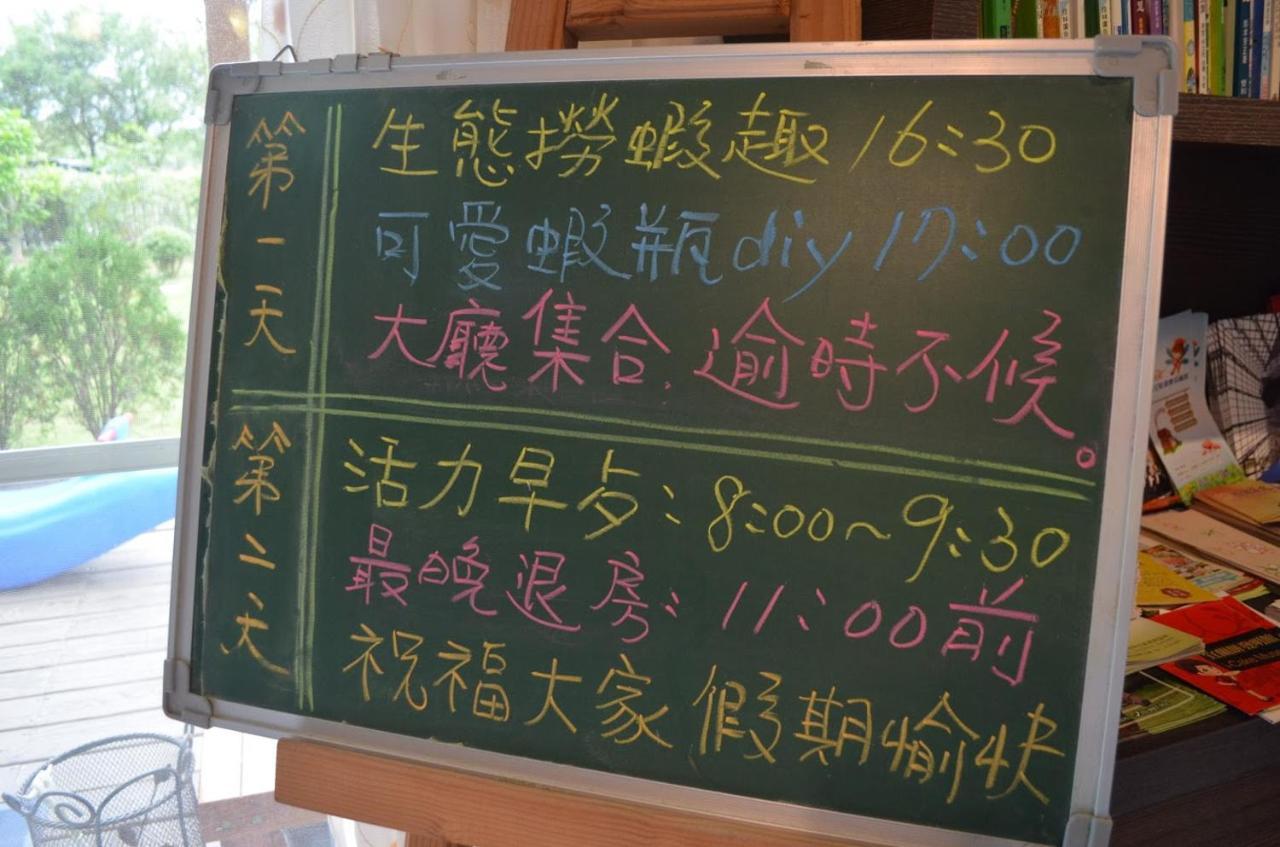 第一天
生態撈蝦趣 16:30
可愛蝦瓶diy 17:00
大廳集合,逾時不候。
第二天
活力早歺:8:00~9:30
最晚退房:11:00前
祝福大家假期愉快